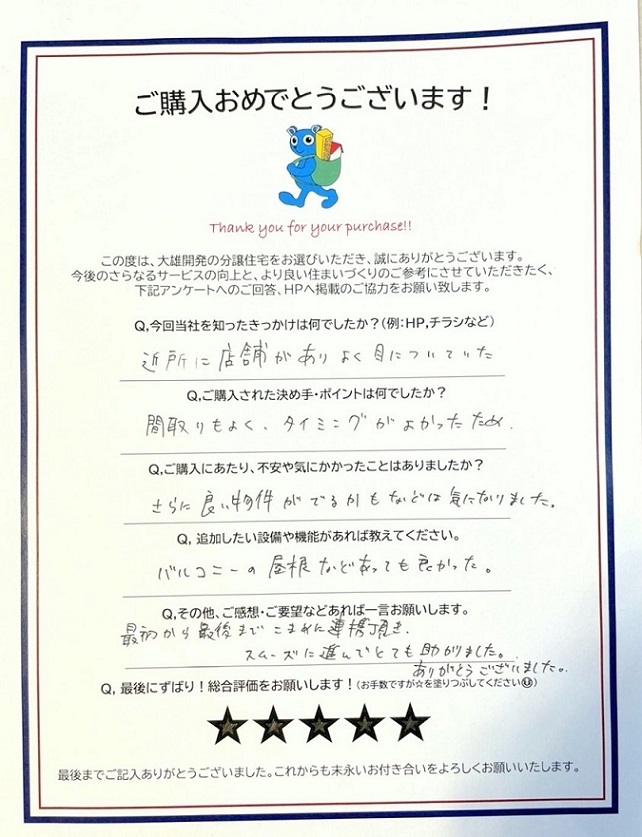 ご購入おめでとうございます！
Thank you for your purchase!!
この度は、大雄開発の分譲住宅をお選びいただき、誠にありがとうございます。
今後のさらなるサービスの向上と、より良い住まいづくりのご参考にさせていただきたく、
下記アンケートへのご回答、HPへ掲載のご協力をお願い致します。
Q,今回当社を知ったきっかけは何でしたか？(例：HP,チラシなど)
近所に店舗がありよく目についていた
Q,ご購入された決め手・ポイントは何でしたか？
間取りもよく、タイミングがよかったため.
Q,ご購入にあたり、不安や気にかかったことはありましたか？
さらに良い物件がでるかもなどは気になりました。
Q, 追加したい設備や機能があれば教えてください。
バルコニーの屋根などあっても良かった。
Q,その他、ご感想・ご要望などあれば一言お願いします。
最初から最後までこまめに連携頂き、
スムーズに進んでとても助かりました。
ありがとうございました。
Q, 最後にずばり！総合評価をお願いします！(お手数ですが☆を塗りつぶしてください)
最後までご記入ありがとうございました。これからも末永いお付き合いをよろしくお願いいたします。